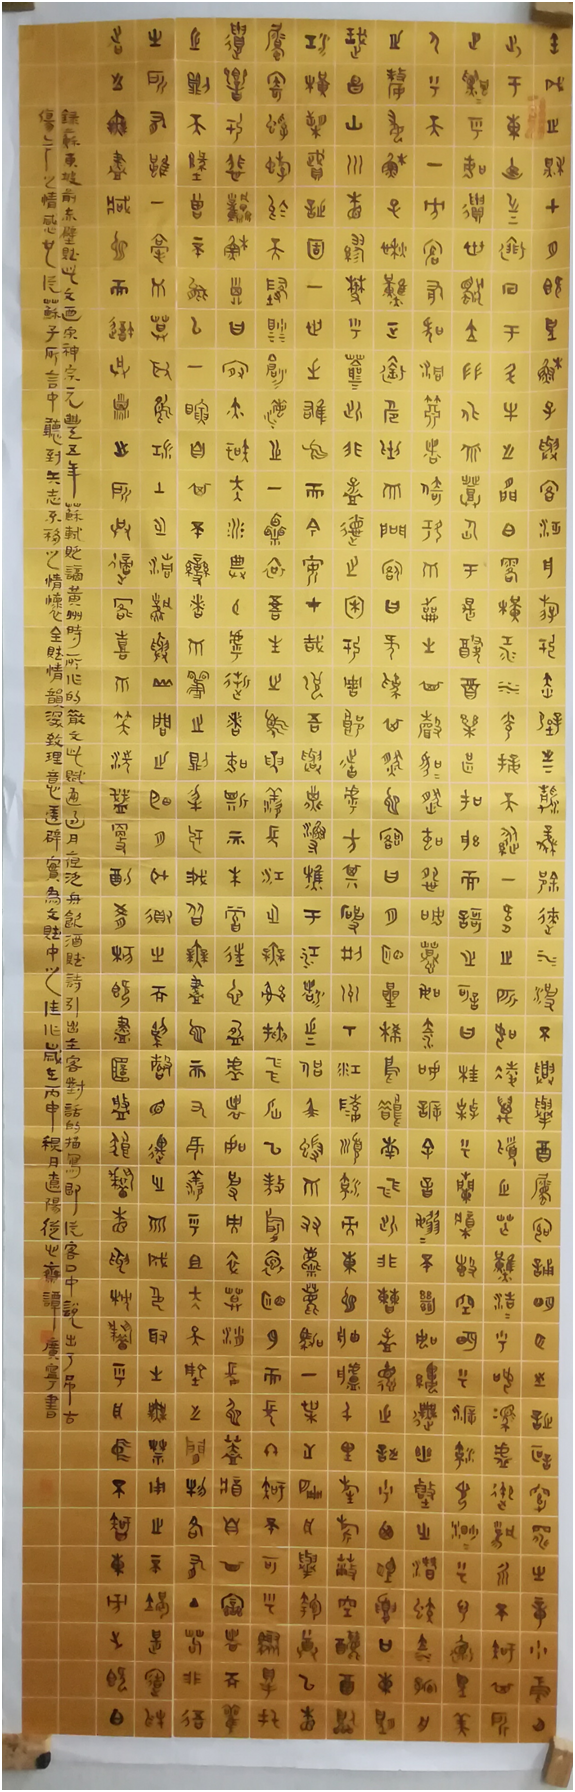 壬戌之秋七月既望蘇子與客泛舟游於赤壁之下清風徐來水波不興舉酒屬客誦明月之詩歌窈窕之章少焉月
出于東山之上徘徊于斗牛之間白露橫江水光接天縱一葦之所如凌萬頃之茫然浩浩乎如馮虛御風而不知其所
止飄飄乎如遺世獨立羽化而登仙于是飲酒樂甚扣舷而歌之歌曰桂棹兮蘭槳擊空明兮溯流光渺渺兮予懷望美
人兮天一方客有吹洞簫者倚歌而和之其聲嗚嗚然如怨如慕如泣如訴餘音嫋嫋不絕如縷舞幽壑之潛蛟泣孤舟
之嫠婦蘇子愀然正襟危坐而問客曰何為其然也客曰月明星稀烏鵲南飛此非曹孟德之詩乎西望夏口東望
武昌山川相繆鬱乎蒼蒼此非孟德之困于周郎者乎方其破荊州下江陵順流而東也舳艫千里旌旗蔽空釃酒臨
江橫槊賦詩固一世之雄也而今安在哉況吾與子漁樵于江渚之上侶魚蝦而友麋鹿駕一葉之扁舟舉匏樽以相
屬寄蜉蝣於天地渺滄海之一粟哀吾生之須臾羨長江之無窮挾飛仙以遨遊抱明月而長終知不可乎驟得託
遺響於悲風蘇子曰客亦知夫水與月乎逝者如斯而未嘗往也盈虛者如彼而卒莫消長也蓋將自其變者而觀
之則天地曾不能以一瞬自其不變者而觀之則物與我皆無盡也而又何羨乎且夫天地之間物各有主苟非吾
之所有雖一毫而莫取惟江上之清風與山間之明月耳得之而為聲目遇之而成色取之無禁用之不竭是造物
者之無盡藏也而吾與子之所共適客喜而笑洗盞更酌肴核既盡杯盤狼籍相與枕藉乎舟中不知東方之既白
錄蘇東坡前赤壁賦此文迺宋神宗元豐五年蘇軾貶謫黃州時所作的散文此賦通過月夜泛舟飲酒賦詩引出主客對話的描寫即從客口中說出了吊古
傷今之情感也從蘇子所言中聽到矢志不移之情懷全賦情韻深致理意透辟實為文賦中之佳作歲在丙申稷月遼陽從心齋譚廣寧書